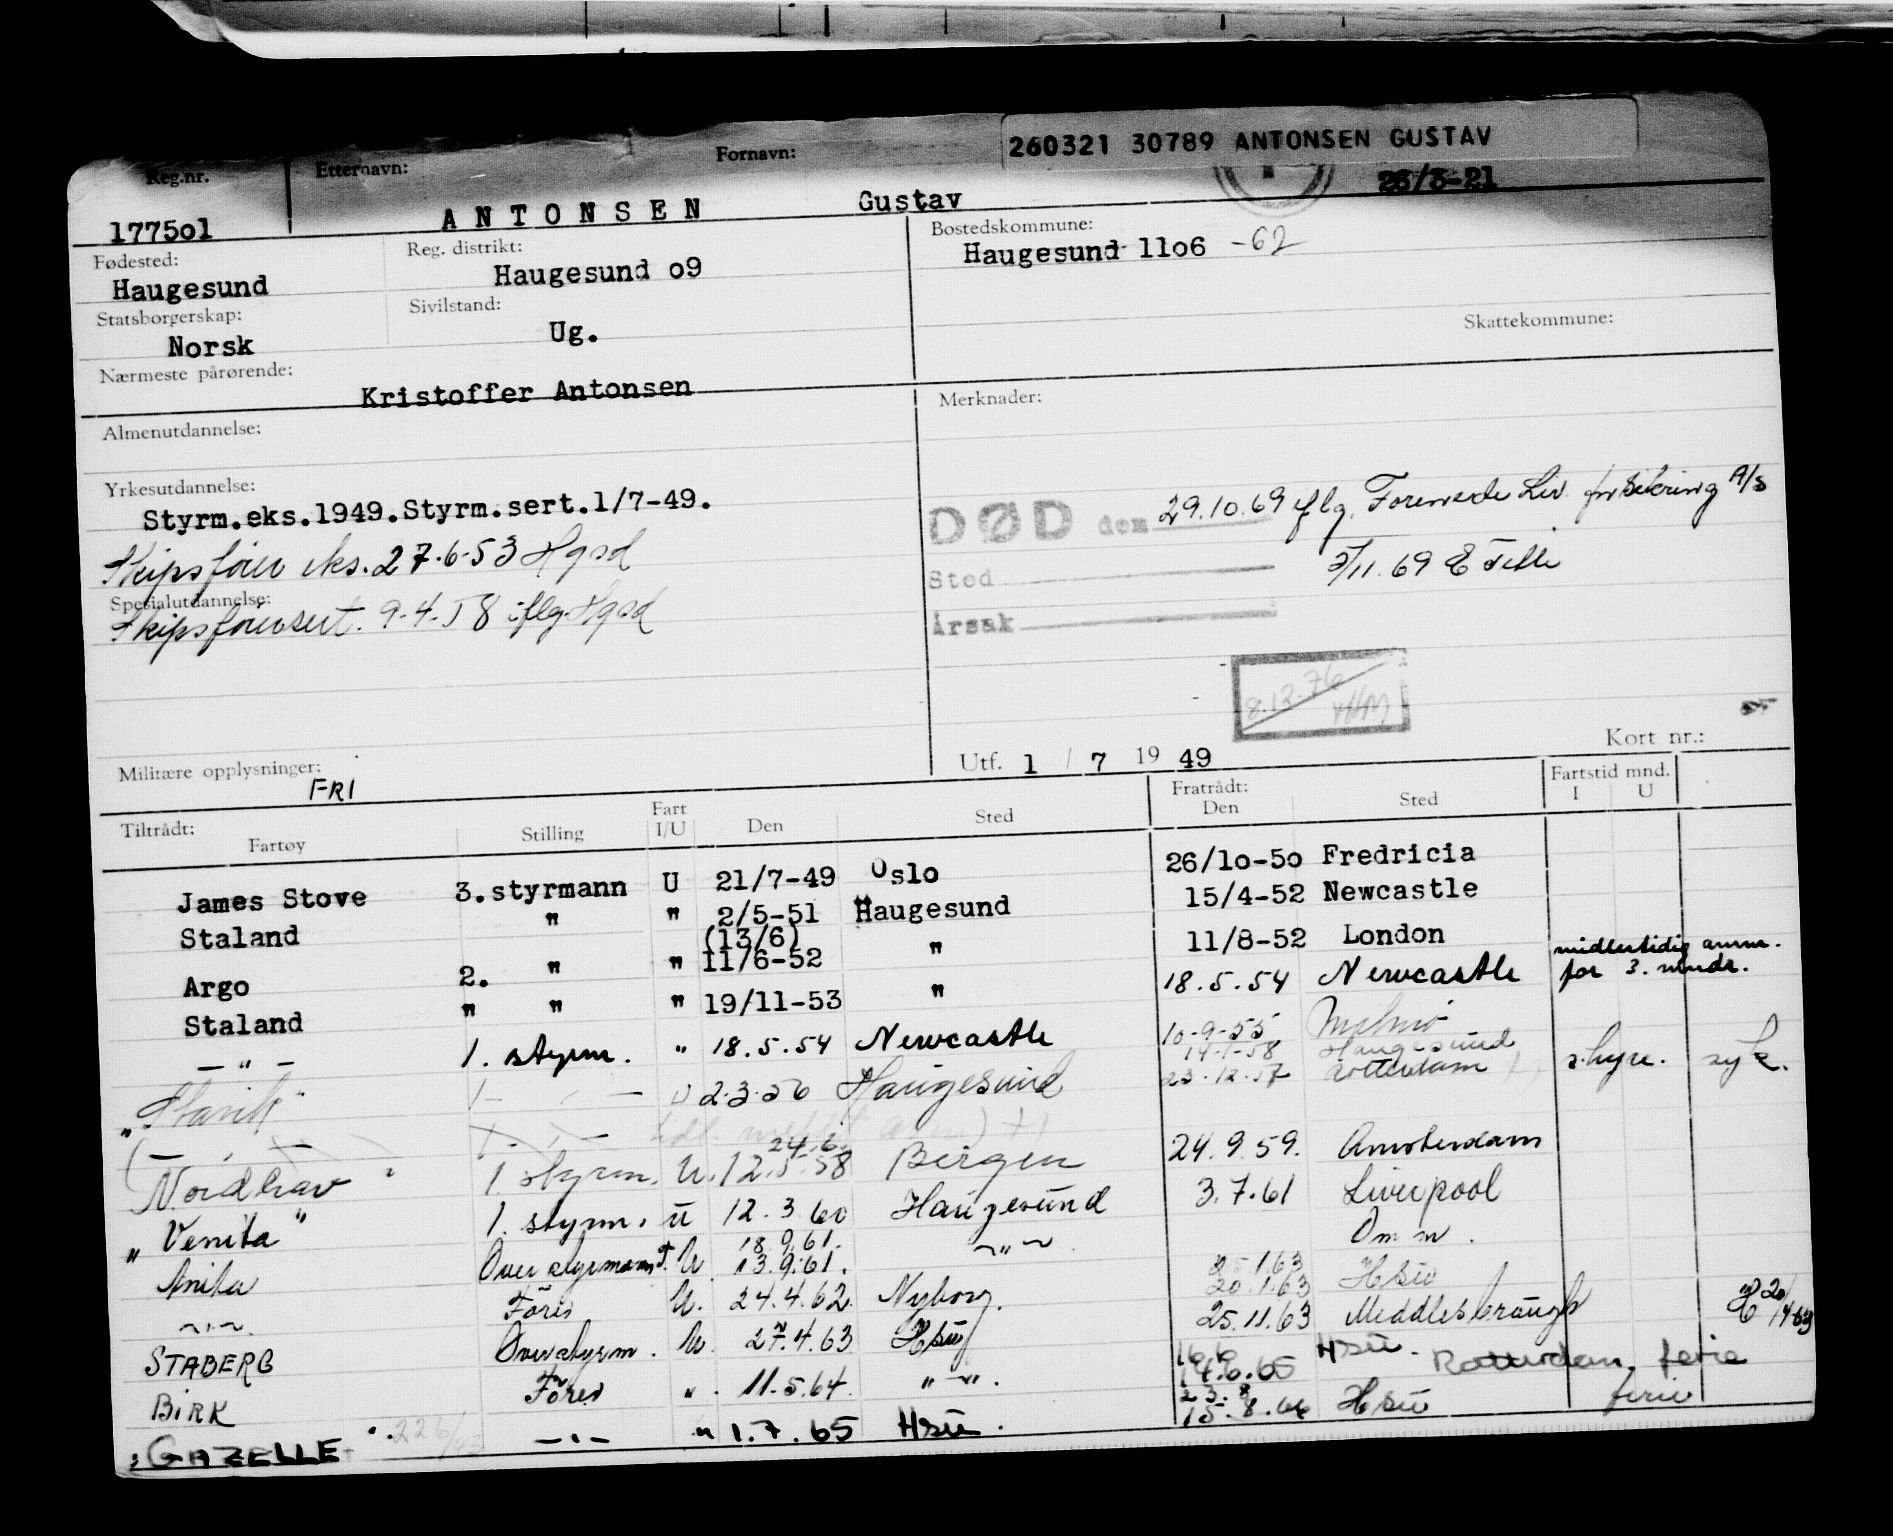 260321 30789 ANTONSEN GUSTAV
Reg.nr. Etternavn: Fornavn:
26/3-21
1775o1 ANTONSEN Gustav
Fødested: Reg. distrikt: Bostedskommune:
Haugesund Haugesund o9 Haugesund 11o6 -62
Statsborgerskap: Sivilstand: Skattekommune:
Norsk Ug.
Nærmeste pårørende:
Kristoffer Antonsen
Almenutdannelse: Merknader:
Yrkesutdannelse:
Styrm.eks.1949.Styrm.sert.1/7-49.
DØD den 29.10.69 iflg. Forenede Liv forsikring A/S
Skipsfører eks. 27.6-53 Hgsd
/11.69
Sted
Spesialutdannelse:
Skipsførersert. 9-4-58 iflg Hgsd
Årsak
8.12-76
Utf. 1 / 7 19 49 Kort nr.:
Militære opplysninger:
FRI
Tiltrådt: Fartøy Stilling Fart I/U Den Sted Fratrådt: Den Sted Fartstid mnd. I U
James Stove 3.styrmann U 21/7-49 Oslo 26/10-50 Fredricia
Staland " " 2/5-51 Haugesund 15/4-52 Newcastle
(13/6)
Argo 2. " " 11/6-52 " 11/8-52 London
midlertidig anm. for 3. mndr.
Staland " " " 19/11-53 " 18.5.54 Newcastle
- " - 1. styrm. " 18.5.54 Newcastle 10-9-55 Malmö
14-1-58 Haugesund
2.3.56 Haugesund 23-12-57 Rotterdam s.hyre. syk.
24.6
Nordhav 1. styrm. U. 12.5.58 Bergen 24.9.59. Amsterdam
"Venita" 1. styrm. U 12.3.60 Haugesund 3.7.61 Liverpool
18.9.61.
Anita Overstyrmann U 13.9.61. - " - Om m.
1.63
- " - Förer U. 24.4.62. Nyborg. 20.1.63 Hsu
STABERG Overstyrm. U. 27.4.63 Hsu 25.11.63 Middlesbrough
16.6 Hsu.
BIRK Förer " 11.5.64. " - ". 14.6.65 Rotterdam, ferie
23.8
GAZELLE - " - " 1.7.65 Hsu. 15.8.66 Hsu ferie